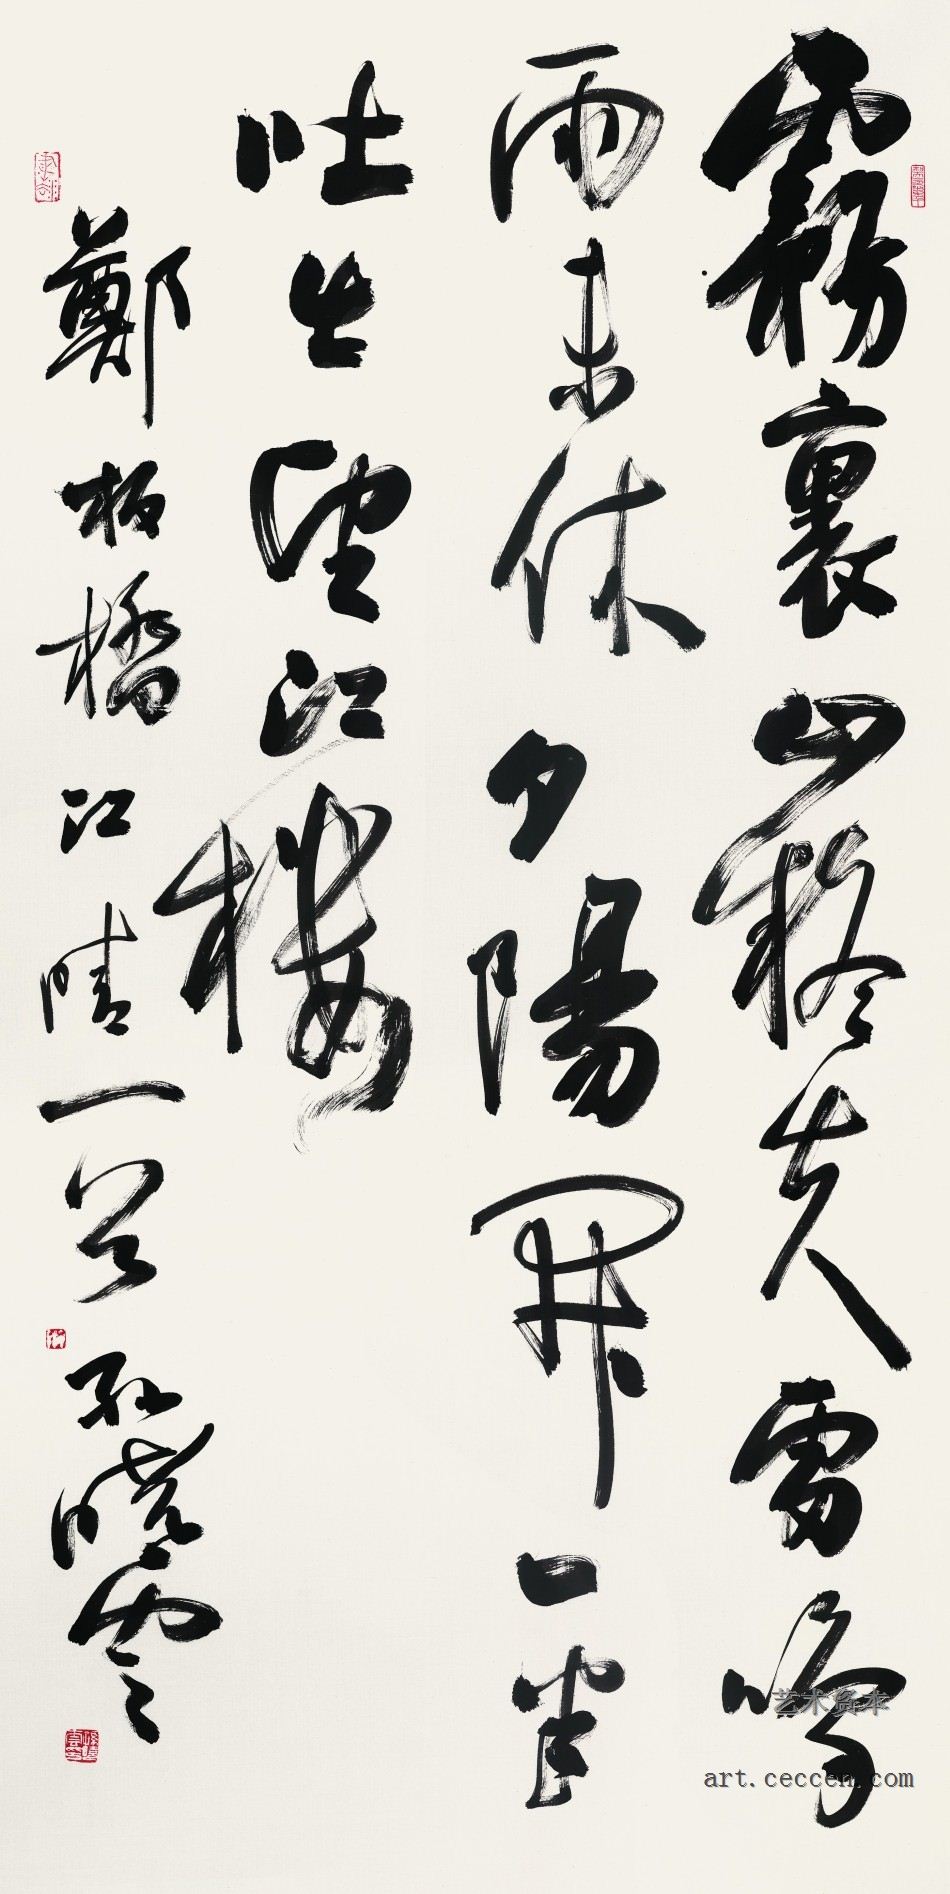 霧裹山疑失雷鳴
雨未休夕陽開一半
吐出望江樓
鄭板橋江晴一首 孫曉雲
艺术资本
art.ceccen.com